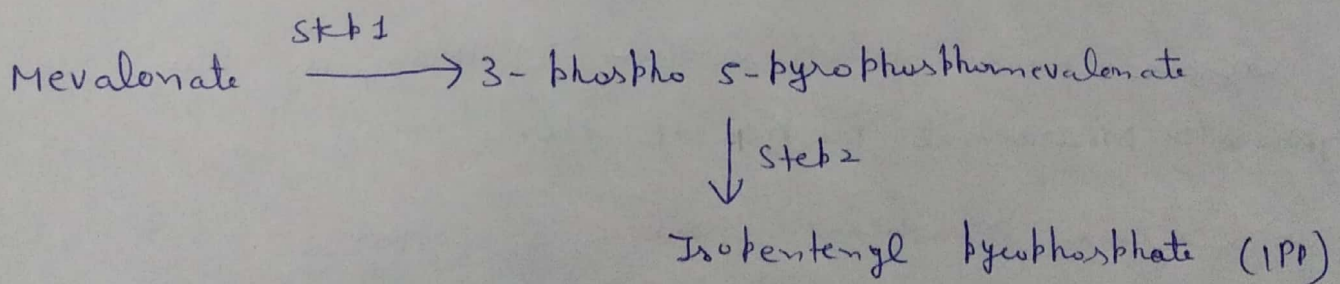 Step 1
Mevalonate → 3- phospho 5-pyrophosphomevalonate
↓ Step 2
Isopentenyl pyrophosphate (IPP)